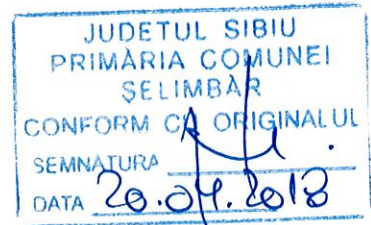 JUDEŢUL SIBIU
PRIMĂRIA COMUNEI
ŞELIMBĂR
CONFORM CU ORIGINALUL
SEMNĂTURA
DATA 20.04.2018